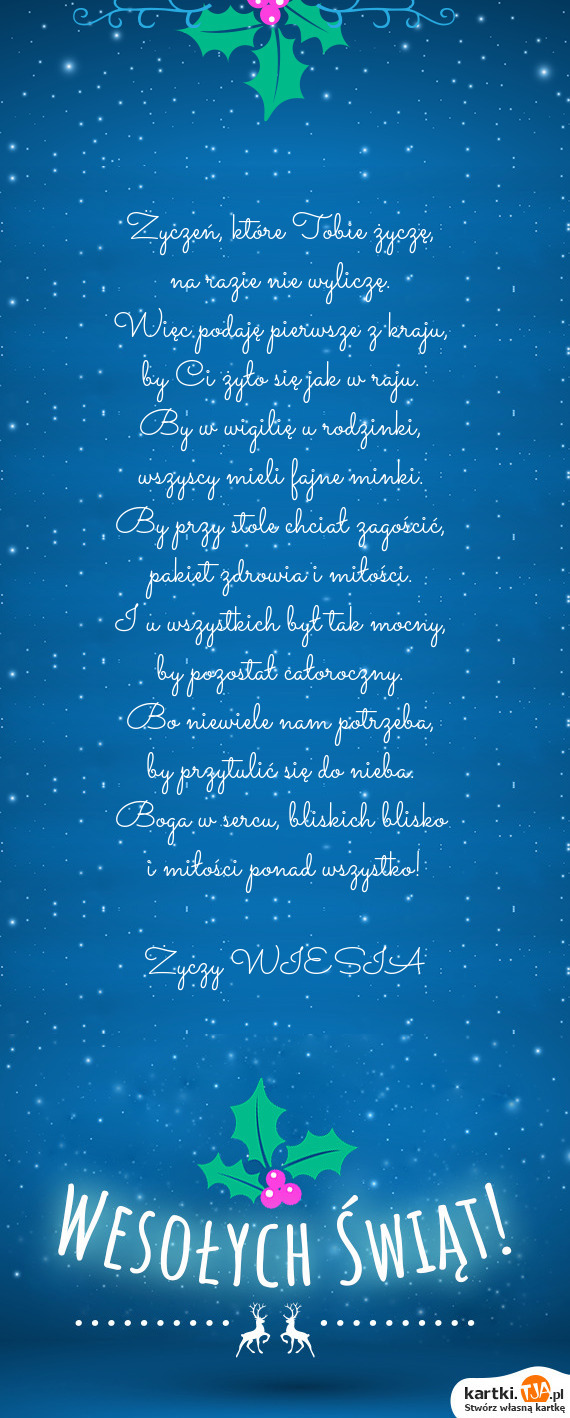 Życzeń, które Tobie życzę,
na razie nie wyliczę.
Więc podaję pierwsze z kraju,
by Ci żyło się jak w raju.
By w wigilię u rodzinki,
wszyscy mieli fajne minki.
By przy stole chciał zagościć,
pakiet zdrowia i miłości.
I u wszystkich był tak mocny,
by pozostał całoroczny.
Bo niewiele nam potrzeba,
by przytulić się do nieba.
Boga w sercu, bliskich blisko
i miłości ponad wszystko!
Życzy WIESIA
Wesołych Świąt!
kartki.TJA.pl
Stwórz własną kartkę